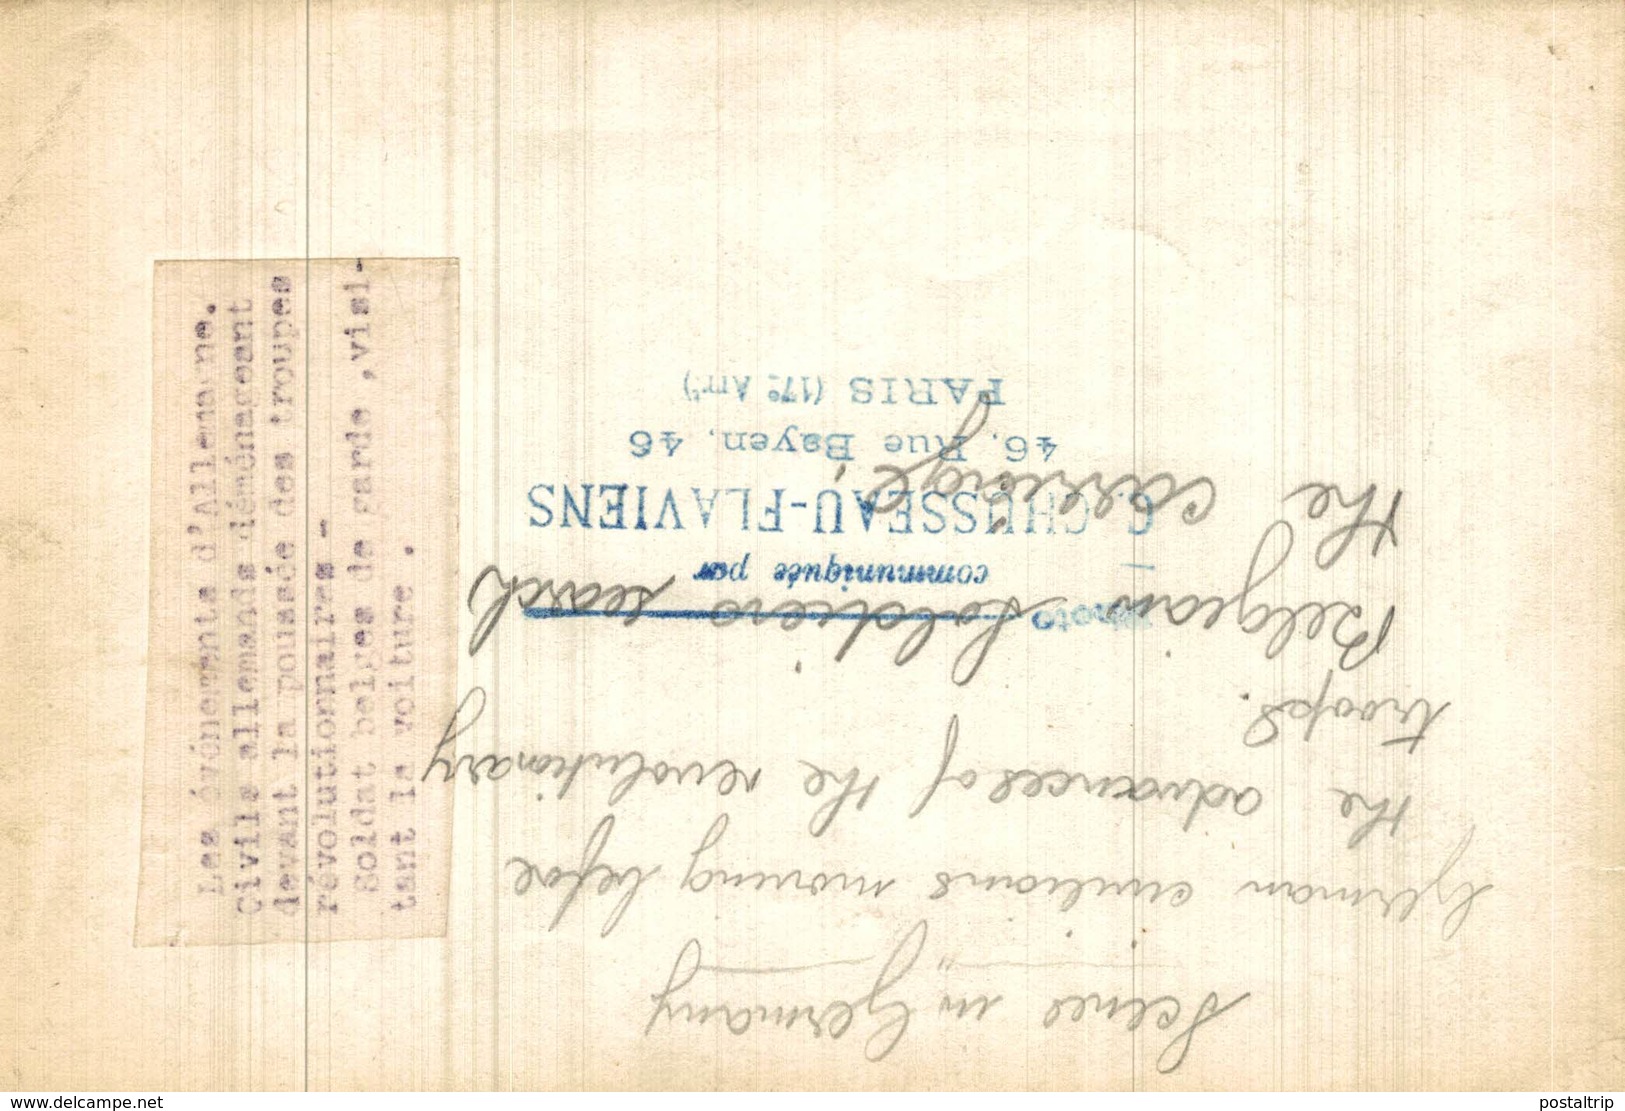 Les événements d'Allemagne.
Civils allemands déménageant
devant la poussée des troupes
révolutionnaires -
Soldat belges de garde ,visi-
tant la voiture .
Scenes in Germany
German civilians moving before
the advances of the revolutionary
troops.
Belgians soldiers search
the carriage
Photo
communiquée par
C. CHUSSEAU-FLAVIENS
46, Rue Bayen, 46
PARIS (17e Arrt)
www.delcampe.net
postaltrip